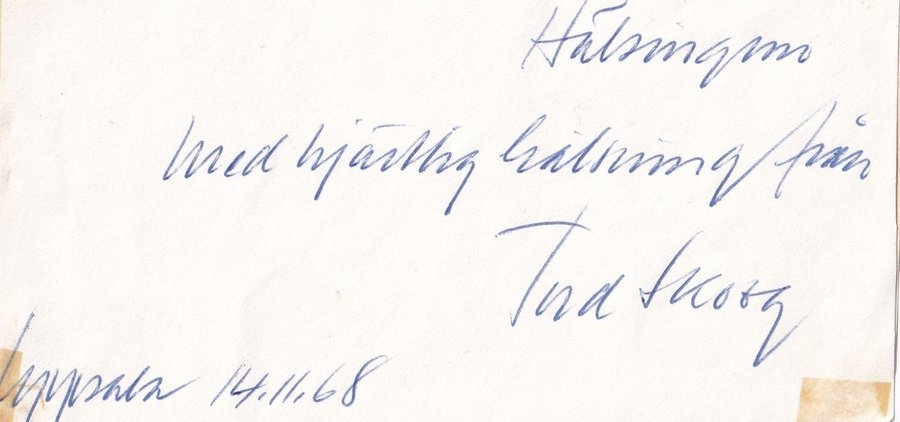 med hjärtlig hälsning från
Tord Skoog
Uppsala 14.11.68